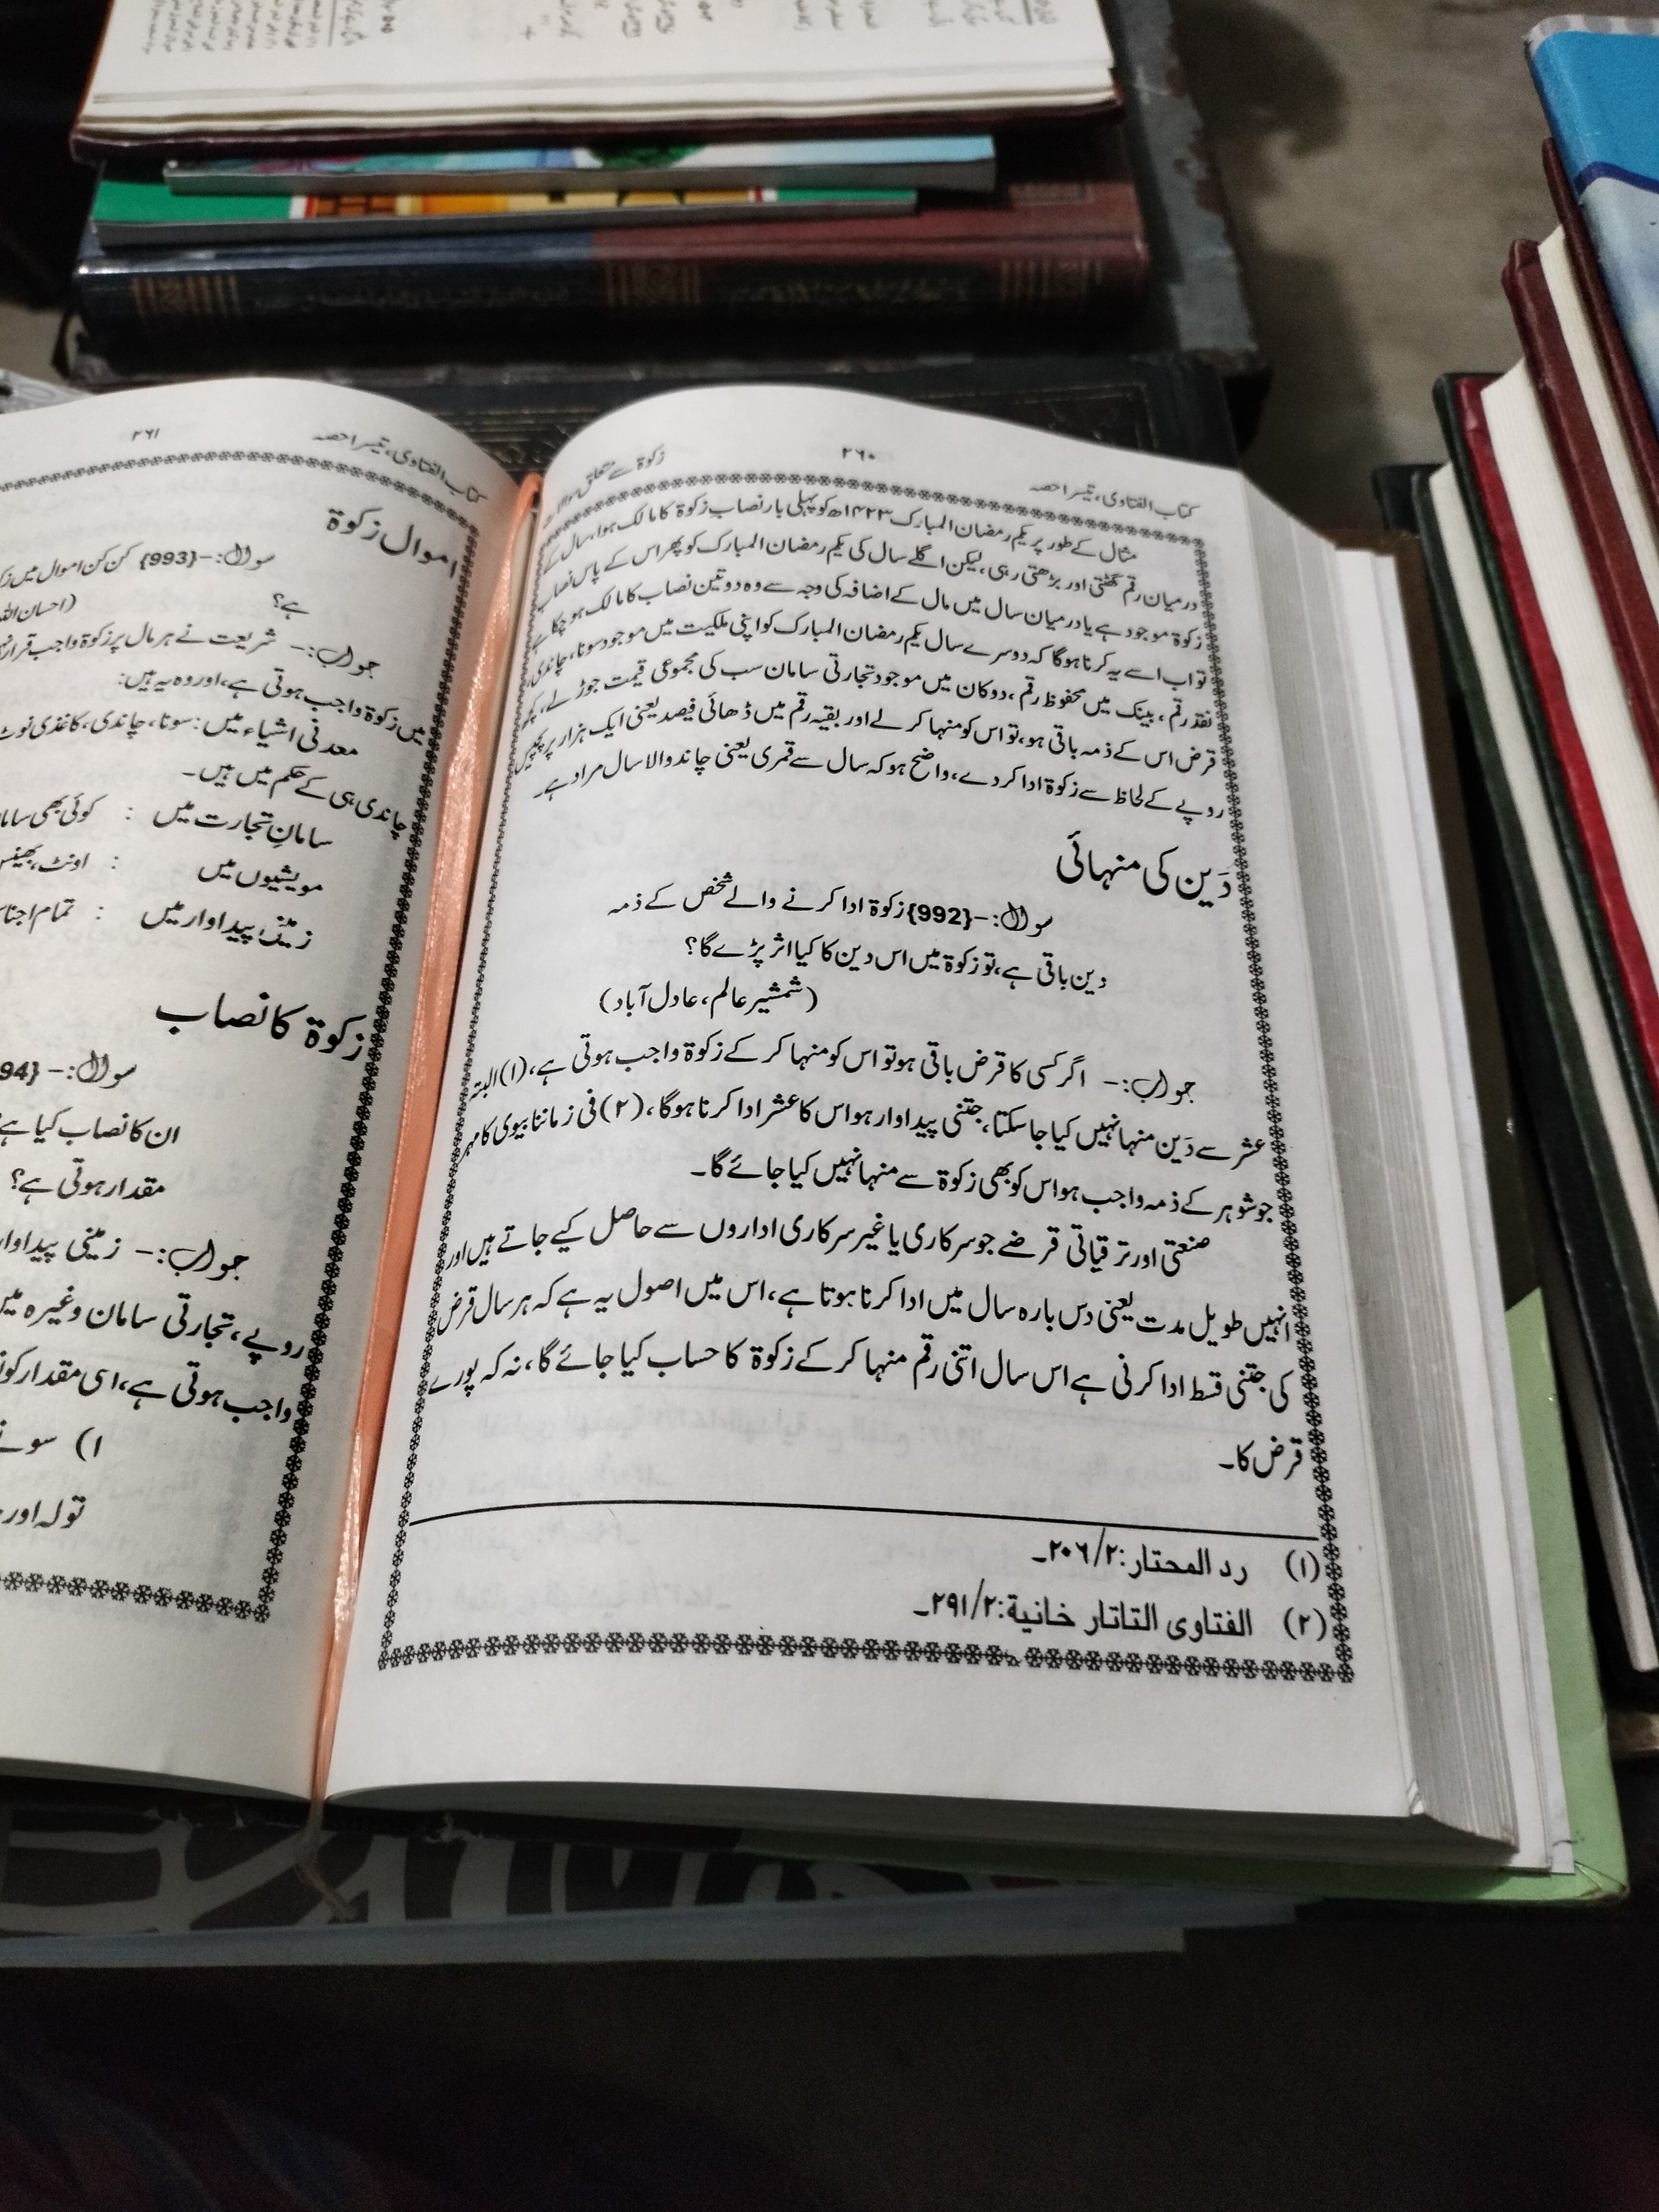 کتاب الفتاوی، تیسرا حصہ
۲۶۰
زکوۃ سے متعلق
مثال کے طور پر یکم رمضان المبارک ۱۴۲۳ھ کو پہلی بار نصاب زکوۃ کا مالک ہوا، سال کے
درمیان رقم گھٹتی اور بڑھتی رہی، لیکن اگلے سال کی یکم رمضان المبارک کو پھر اس کے پاس نصاب
زکوۃ موجود ہے یا درمیان سال میں مال کے اضافہ کی وجہ سے وہ دو تین نصاب کا مالک ہو چکا ہے
تو اب اسے یہ کرنا ہوگا کہ دوسرے سال یکم رمضان المبارک کو اپنی ملکیت میں موجود سونا، چاندی،
نقد رقم، بینک میں محفوظ رقم، دوکان میں موجود تجارتی سامان سب کی مجموعی قیمت جوڑ لے، کچھ
قرض اس کے ذمہ باقی ہو، تو اس کو منہا کر لے اور بقیہ رقم میں ڈھائی فیصد یعنی ایک ہزار پر پچیس
روپے کے لحاظ سے زکوۃ ادا کر دے، واضح ہو کہ سال سے قمری یعنی چاند والا سال مراد ہے۔
دَین کی منہائی
سوال:- {992} زکوۃ ادا کرنے والے شخص کے ذمہ
دین باقی ہے، تو زکوۃ میں اس دین کا کیا اثر پڑے گا؟
(شمشیر عالم، عادل آباد)
جواب:- اگر کسی کا قرض باقی ہو تو اس کو منہا کر کے زکوۃ واجب ہوتی ہے، (۱) البتہ
عشر سے دَین منہا نہیں کیا جا سکتا، جتنی پیداوار ہو اس کا عشر ادا کرنا ہوگا، (۲) فی زماننا بیوی کا مہر
جو شوہر کے ذمہ واجب ہو اس کو بھی زکوۃ سے منہا نہیں کیا جائے گا۔
صنعتی اور ترقیاتی قرضے جو سرکاری یا غیر سرکاری اداروں سے حاصل کیے جاتے ہیں اور
انہیں طویل مدت یعنی دس بارہ سال میں ادا کرنا ہوتا ہے، اس میں اصول یہ ہے کہ ہر سال قرض
کی جتنی قسط ادا کرنی ہے اس سال اتنی رقم منہا کر کے زکوۃ کا حساب کیا جائے گا، نہ کہ پورے
قرض کا۔
(۱) رد المحتار: ۲/۲۰۶۔
(۲) الفتاوی التاتار خانیة: ۲/۲۹۱۔
کتاب الفتاوی، تیسرا حصہ
۲۶۱
اموال زکوۃ
سوال:- {993} کن کن اموال میں
ہے؟
(احسان اللہ
جواب:- شریعت نے ہر مال پر زکوۃ واجب قرار
میں زکوۃ واجب ہوتی ہے، اور وہ یہ ہیں:
معدنی اشیاء میں: سونا، چاندی، کاغذی نوٹ
چاندی ہی کے حکم میں ہیں۔
سامانِ تجارت میں : کوئی بھی
مویشیوں میں : اونٹ، بھینس
زمینی پیداوار میں : تمام
زکوۃ کا نصاب
سوال:- {94
ان کا نصاب کیا ہے
مقدار ہوتی ہے؟
جواب:- زمینی پیداوار
روپے، تجارتی سامان وغیرہ میں
واجب ہوتی ہے، اسی مقدار کو
۱) سونے
تولہ اور